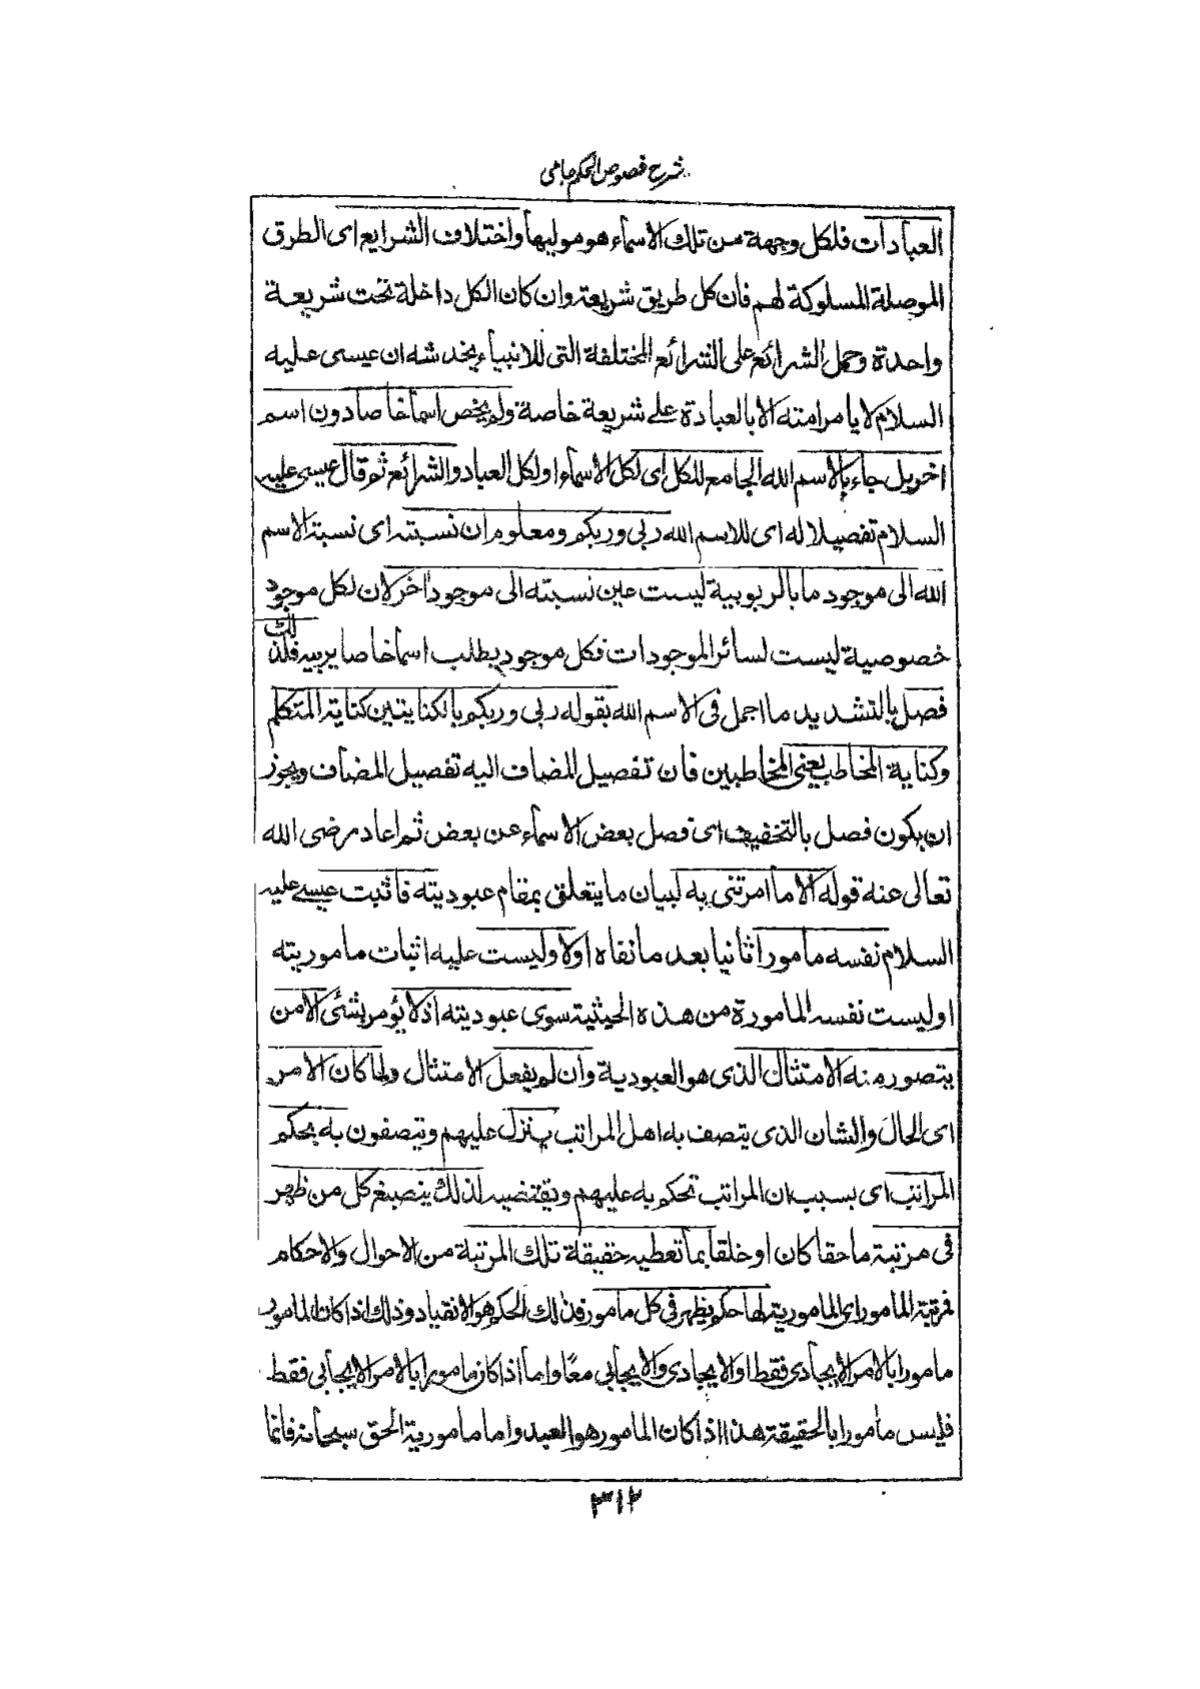 شرح فصوص الحكم جامى
العبادات فلكل وجهة من تلك الاسماء هو موليها واختلاف الشرايع اى الطرق
الموصلة المسلوكة لهم فان كل طريق شريعة وان كان الكل داخلة تحت شريعة
واحدة وحمل الشرائع على الشرائع المختلفة التى للانبياء يخدشه ان عيسى عليه
السلام لا يامر امته الا بالعبادة على شريعة خاصة ولم يخص اسما خاصا دون اسم
اخر بل جاء بالاسم الله الجامع للكل اى لكل الاسماء او لكل العباد والشرائع ثم قال عيسى عليه
السلام تفصيلا له اى للاسم الله ربى وربكم ومعلوم ان نسبته اى نسبة الاسم
الله الى موجود ما بالربوبية ليست عين نسبته الى موجود اخر لان لكل موجود
خصوصية ليست لسائر الموجودات فكل موجود يطلب اسما خاصا يربيه فلذلك
فصل بالتشديد ما اجمل فى الاسم الله بقوله ربى وربكم بالكنايتين كناية المتكلم
وكناية المخاطب يعنى المخاطبين فان تفصيل المضاف اليه تفصيل المضاف ويجوز
ان يكون فصل بالتخفيف اى فصل بعض الاسماء عن بعض ثم اعاد رضى الله
تعالى عنه قوله الا ما امرتنى به لبيان ما يتعلق بمقام عبوديته فاثبت عيسى عليه
السلام نفسه مامورا ثانيا بعد ما نفاه اولا وليست عليه اثبات ماموريته
او ليست نفسه المامورة من هذه الحيثية سوى عبوديته اذ لا يؤمر بشئ الا من
يتصور منه الامتثال الذى هو العبودية وان لم يفعل الامتثال ولما كان الامر
اى الحال والشان الذى يتصف به اهل المراتب ينزل عليهم ويتصفون به بحكم
المراتب اى بسبب ان المراتب تحكم به عليهم وتقتضيه لذلك ينصبغ كل من ظهر
فى مرتبة ما حقا كان او خلقا بما تعطيه حقيقة تلك المرتبة من الاحوال والاحكام
فمرتبة المامور اى المامورية لها حكم يظهر فى كل مامور فذلك الحكم هو الانقياد وذلك اذا كان المامور
مامورا بالامر الايجادى فقط او الايجادى والايجابى معا واما اذا كان مامورا بالامر الايجابى فقط
فليس مامورا بالحقيقة هذا اذا كان المامور هو العبد واما مامورية الحق سبحانه فانما
٣١٢